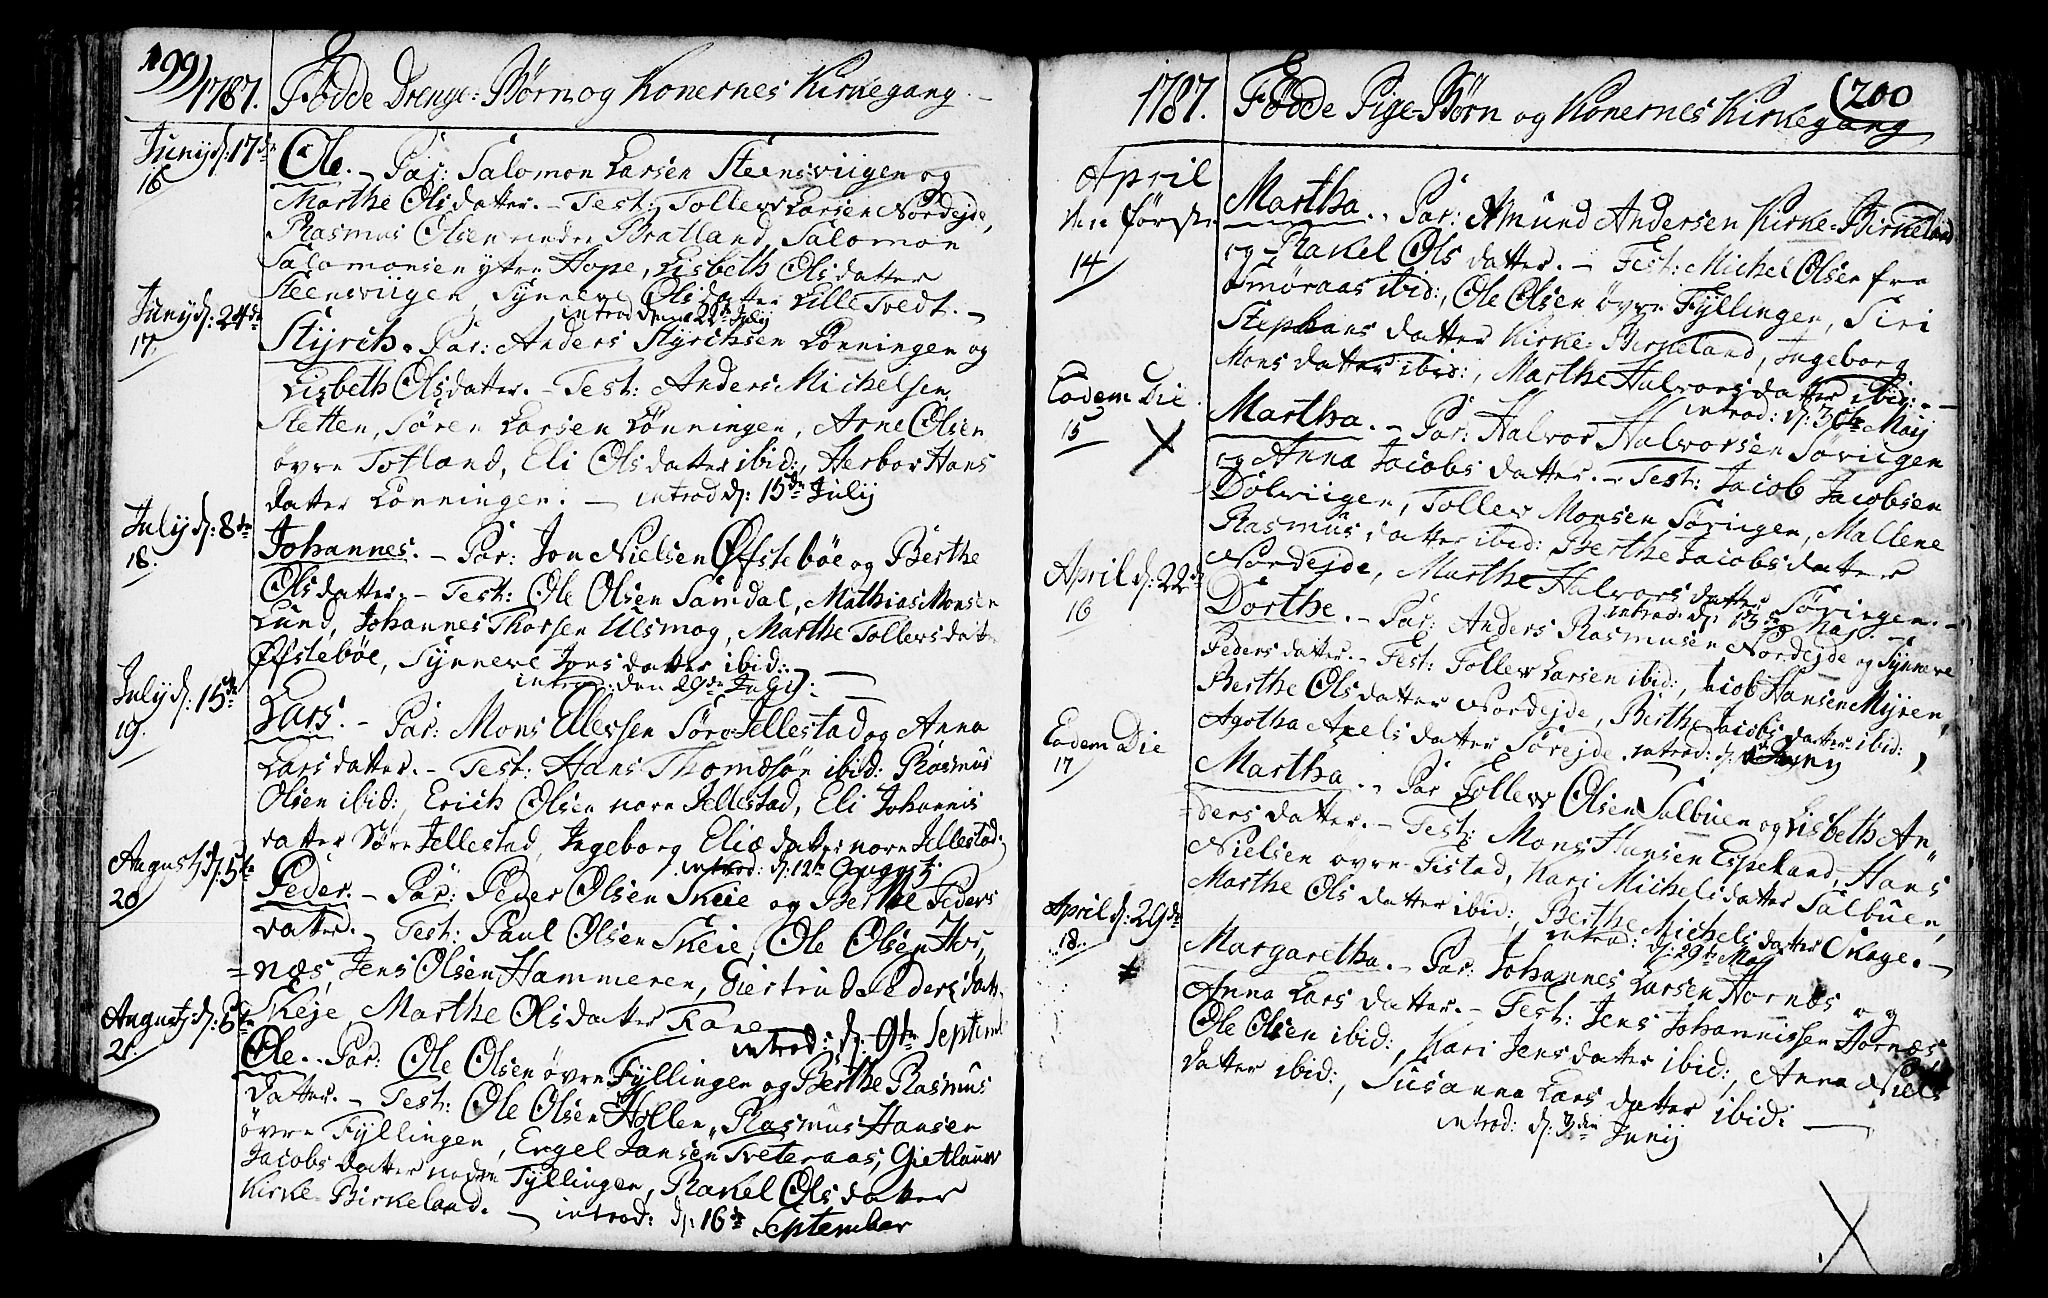 199)
1787. Födde Drenge-Börn og Konernes Kirkegang.
Junij d: 17de
16
Ole. Par: Salomon Larsen Steensviigen og
Marthe Olsdatter. Test: Tollev Larsen Nordejde,
Rasmus Olsen nedre Bratland, Salomon
Salomonsen ytre Hope, Lisbeth Olsdatter
Steensviigen, Synneve Olsdatter Lille Tvedt.
introd: den 22de Julij
Junij d: 24de
17.
Styrch. Par: Anders Styrchsen Lönningen og
Lisbeth Olsdatter. Test: Anders Michelsen
Sletten, Sören Larsen Lönningen, Arne Olsen
övre Totland, Eli Olsdatter ibid:, Herbor Hans
datter Lönningen. introd d: 15de Julij
Julij d: 8de
18.
Johannes. Par: Jon Nielsen Øfstebøe og Berthe
Olsdatter. Test: Ole Olsen Samdal, Mathias Monsen
Lund, Johannes Thorsen Ulsmog, Marthe Tollevsdat
Øfstebøe, Synneve Jonsdatter ibid:
introd: den 29de Julij:
Julij d: 15de
19.
Lars. Par: Mons Ellessen Söre Jellestad og Anna
Larsdatter. Test: Hans Thomæsön ibid: Rasmus
Olsen ibid:, Erich Olsen nore Jellestad, Eli Johannis
datter Söre Jellestad, Ingeborg Eliæ datter nore Jellestad:
introd: d: 12te Augustj
Augustj d: 5te
20
Peder. Par: Peder Olsen Skeie og Berthe Peders
datter. Test: Paul Olsen Skeie, Ole Olsen Hor,
=næs, Jens Olsen Hammeren, Giertrud Peders dattr
Skeje, Marthe Olsdatter Fane
introd: d: 9de Septemb
Augustj d: 5te
21.
Ole. Par: Ole Olsen övre Fyllingen og Berthe Rasmus
datter. Test: Ole Olsen Hollen, Rasmus Hansen
övre Fyllingen, Engel Jansen Tveteraas, Gietlauv
Jacobsdatter nedre Fyllingen, Rakel Olsdatter
Kirke-Birkeland. introd: d: 16de September
(200
1787. Födde Pige-Börn og Konernes Kirkegang
April
den første
14
Martha. Par: Amund Andersen Kirke-Birkeland
og Rakel Olsdatter. Test: Michel Olsen fra
Smöraas ibid:, Ole Olsen övre Fyllingen, Siri
Stephens datter Kirke-Birkeland, Ingeborg
Monsdatter ibid:, Marthe Halvorsdatter ibid:
introd: d: Maij
Eadem Die
15
Martha. Par: Halvor Halvorsen Söviigen
og Anna Jacobsdatter. Test: Jacob Jacobsen
Dolviigen, Tollev Monsen Söviigen, Mallene
Rasmus datter ibid: Berthe Jacobsdatter
Nordejde, Marthe Halvorsdatter Söviigen.
introd: d: Maj.
April d: 22de
16
Dorthe. Par: Anders Rasmusen Nordejde og Synneve
Pedersdatter. Test: Tollev Larsen ibid:, Jacob Hansen Myren,
Berthe Olsdatter Nordejde, Berthe Jacobsdatter ibid:,
Agotha Axelsdatter Sörejde. introd: d: Junij
Eadem Die
17
Martha. Par Tollev Olsen Salbuen og Lisbeth An
=dersdatter. Test: Mons Hansen Espeland, Hans
Nielsen övre Titstad, Kari Michelsdatter Salbuen,
Marthe Olsdatter ibid:, Berthe Michelsdatter Skage.
introd: d: 29de Maj
April d: 29de
18.
Margaretha. Par: Johannes Larsen Hornæs og
Anna Larsdatter. Test: Jens Johannissen Hornæs
Ole Olsen ibid:, Kari Jensdatter ibid:, Anna Niels
datter ibid:, Susanna Larsdatter ibid:
introd: d: 3die Junij